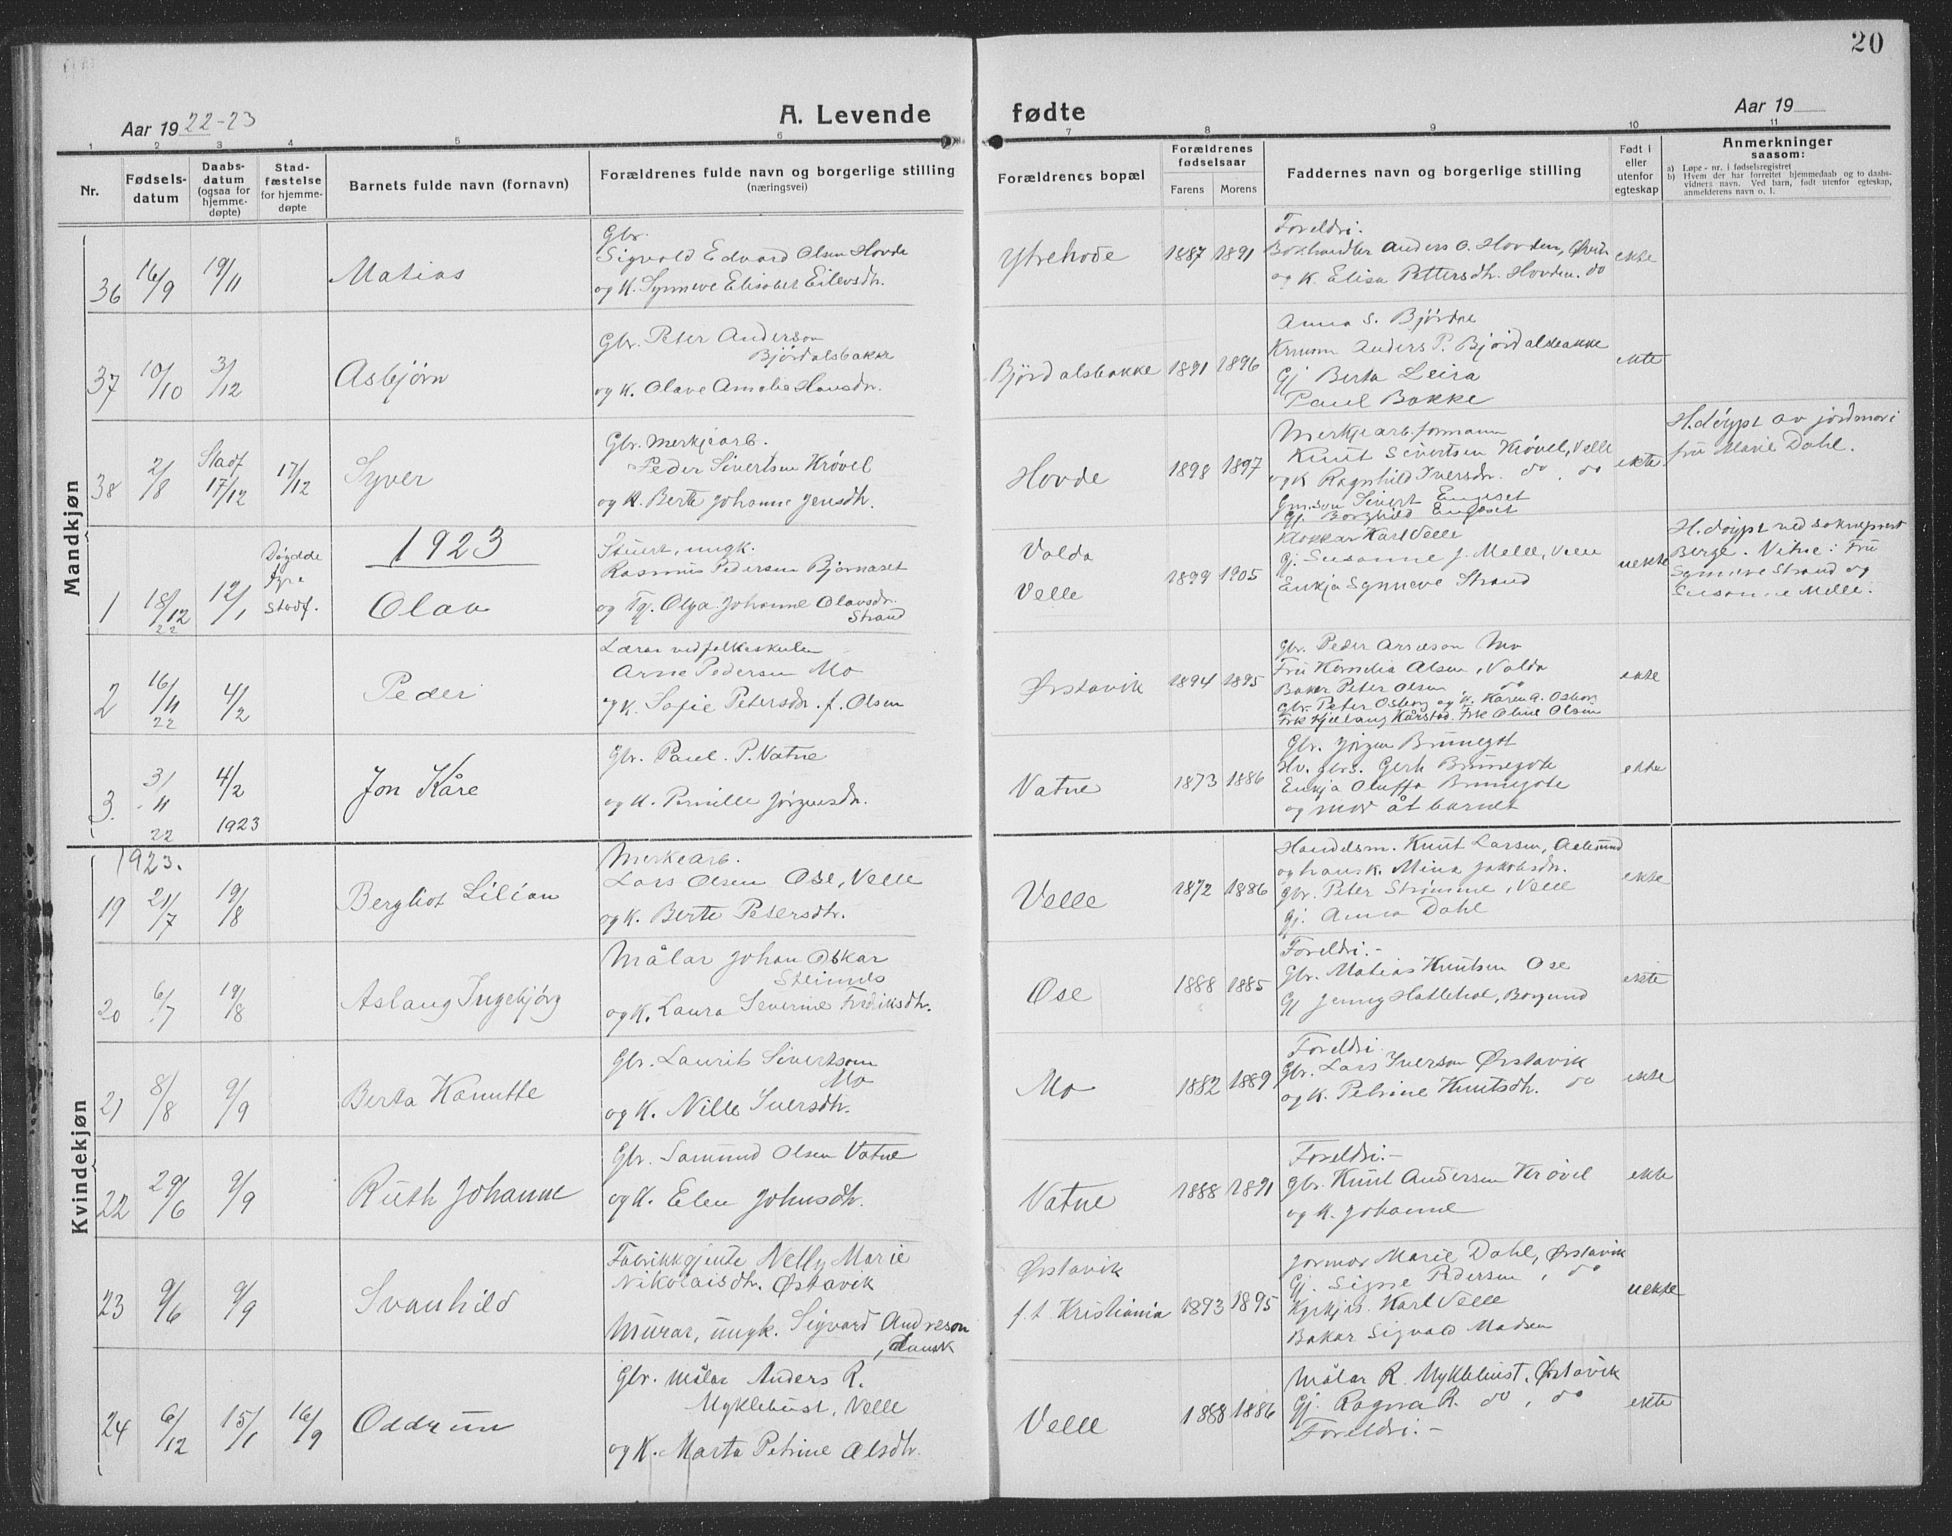 20
Aar 1922-23
A. Levende fødte
Aar 19
1 2 3 4 5 6 7 8 9 10 11
Nr.
Fødsels-
datum
Daabs-
datum
(ogsaa for
hjemme-
døpte)
Stad-
fæstelse
for hjemme-
døpte
Barnets fulde navn (fornavn)
Forældrenes fulde navn og borgerlige stilling
(næringsvei)
Forældrenes bopæl
Forældrenes
fødselsaar
Farens Morens
Faddernes navn og borgerlige stilling
Født i
eller
utenfor
egteskap
Anmerkninger
saasom:
a) Løpe-nr. i fødselsregistret
b) Hvem der har forrettet hjemmedaab og to daabs-
vidners navn. Ved barn, født utenfor egteskap,
anmelderens navn o. l.
Mandkjøn
36 16/9 19/11 Matias
Gbr.
Sigvald Edvard Olsen Hovde
og K. Synneve Elisabet Eilevsdtr.
Ytrehovde 1887 1891
Foreldri.
Anders O. Hovden,
og K. Elisa Pettersdtr. Hovden. do
ekte
37 10/10 3/12 Asbjørn
Gbr. Peter Anderson
Bjørdalsbakke
og K. Olave Amalie Hansdtr.
Bjørdalsbakke 1891 1896
Anna S. Bjørdal
Anders P. Bjørdalsbakke
Gj Berta Leira
Paul Bakke
ekte
38 2/8 Stadf 17/12 17/12 Syver
Gbr. Merkjearb.
Peder Sivertsen Krøvel
og K. Berte Johanne Jensdtr.
Hovde 1898 1897
Merkjearb. formann
Knut Sivertsen Krøvel, Velle
og K Ragnhild Iversdtr. do, do
Gm.son Sivert Engeset
Gj. Borghild Engeset
ekte
H.døypt av jordmor i
fru Marie Dahl.
1923
1 18/12 22 12/1 Døydde fyre stadf. Olav
Stuert, ungk.
Rasmus Pedersen Bjørnaset
og Tgj. Olga Johanne Olavsdr.
Strand
Volda
Velle
1899 1905
Klokkar Karl Velle
Gj. Susanne J. Melle, Velle
Enkja Synneve Strand
uekte
H.døypt ved sokneprest
Berge. Vitne: Fru
Synneve Strand og
Susanne Melle.
2 16/11 22 4/2 Peder
Lærar ved folkeskulen
Arne Pedersen Mo
og K. Sofie Petersdtr. f. Olsen
Ørstavik 1894 1895
Gbr. Peder Arneson Mo
Fru Kornelia Olsen, Volda
Baker Peter Olsen do
Gbr. Peter Osborg og K. Karen A. Osborg
Frk Kjellaug Kårstad. Frk Oline Olsen
ekte
3. 3/11 22 4/2 1923 Jon Kåre
Gbr. Paul P. Vatne
og K. Pernille Jørgensdr.
Vatne 1873 1886
Gbr. Jørgen Brunegot
Hv. gbrs. Gerh Brunegote
Enkja Oluffa Brunegote
og mor åt barnet
ekte
Kvindekjøn
1923.
19 21/7 19/8 Bergliot Lilian
Merkearb.
Lars Olsen Ose, Velle
og K. Berte Petersdtr.
Velle 1872 1886
Handelsm. Knut Larsen, Aalesund
og hans k. Mina Jakobsdr.
Gbr. Peter Strømme, Velle
Gj. Anna Dahl
ekte
20 6/7 19/8 Aslaug Ingebjørg
Målar Johan Oskar
Steinnes
og K. Laura Severine Fredriksdtr.
Ose 1888 1885
Foreldri.-
Gbr. Matias Knutsen Ose
Gj Jenny Hatlehol, Borgund
ekte
21 8/8 9/9 Berta Kanutte
Gbr. Laurits Sivertson
Mo
og K. Nille Iversdtr.
Mo 1882 1889
Foreldri.
Gbr. Lars Iverson Ørstavik
og K. Petrine Knutsdtr. do
ekte
22 29/6 9/9 Ruth Johanne
Gbr. Samund Olsen Vatne
og K. Elen Johnsdtr.
Vatne 1888 1891
Foreldri.-
Gbr. Knut Andersen Krøvel
og K. Johanne
ekte
23 9/6 9/9 Svanhild
Fabrikkgjente Nelly Marie
Nikolaisdtr. Ørstavik
Murar, ungk. Sigvard Andreson
, dansk
Ørstavik
f. t. Kristiania
1893 1895
Jormor Marie Dahl, Ørstavik
Gj. Signe Pedersen, do
Kyrkjes. Karl Velle
Bakar Sigvald Madsen
uekte
24 6/12 15/1 16/9 Oddrun
Gbr. målar Anders R.
Myklebust, Velle
og K. Marta Petrine Olsdtr.
Velle 1888 1886
Målar R. Myklebust, Ørstavik
Gj. Ragna R. do, do
Foreldri.-
ekte